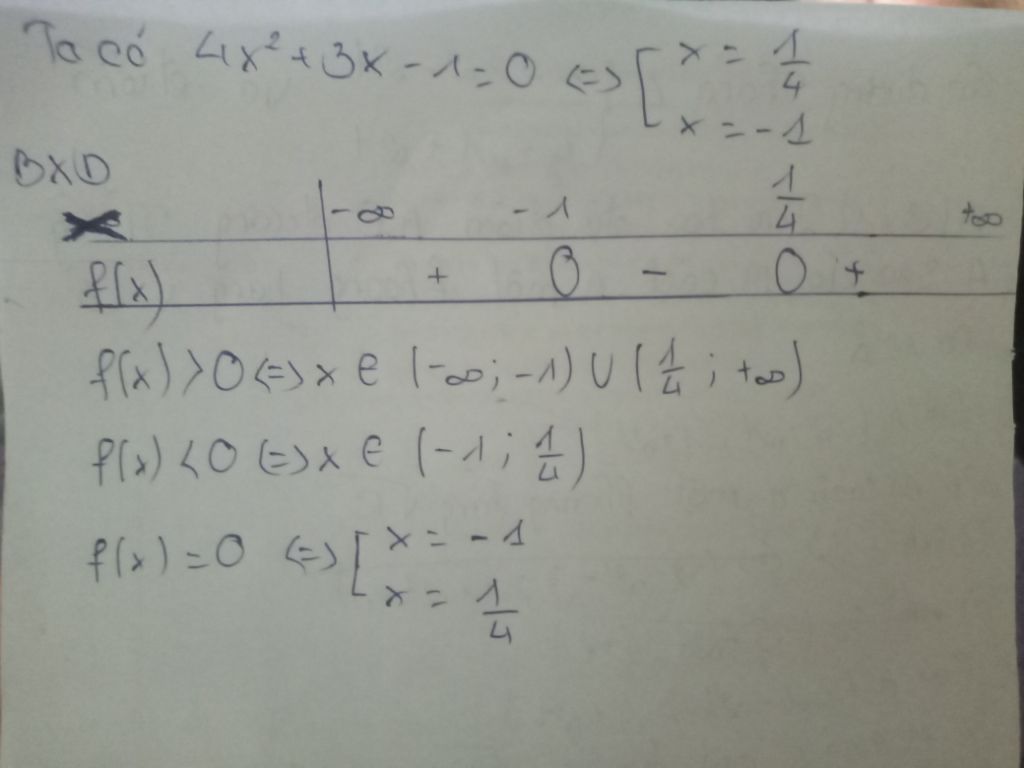 Ta có 4x² + 3x - 1 = 0 <=> [ x = 1/4
x = -1
BXD
x -∞ -1 1/4 +∞
f(x) + 0 - 0 +
f(x) > 0 <=> x ∈ (-∞; -1) ∪ (1/4; +∞)
f(x) < 0 <=> x ∈ (-1; 1/4)
f(x) = 0 <=> [ x = -1
x = 1/4